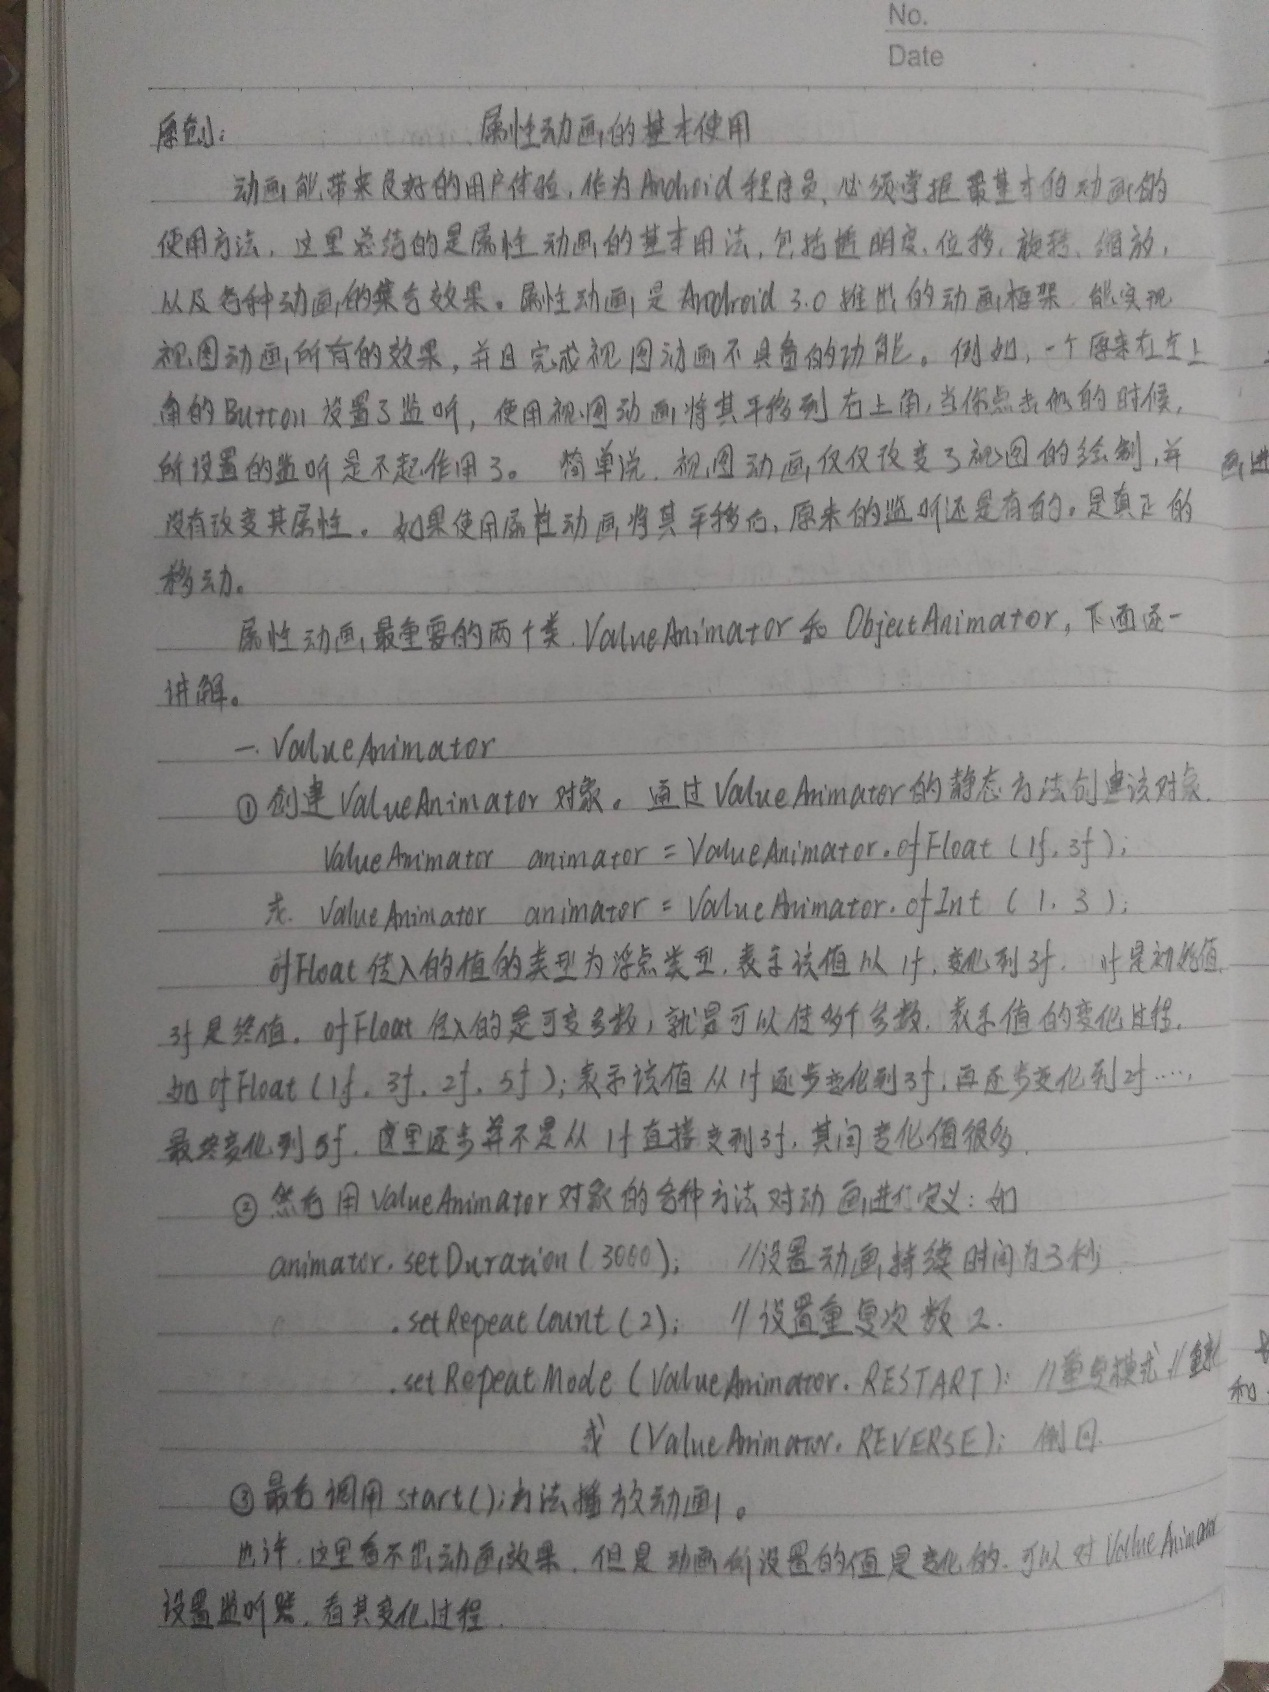 No.
Date
原创： 属性动画的基本使用
动画能带来良好的用户体验，作为Android程序员，必须掌握最基本的动画的
使用方法，这里总结的是属性动画的基本用法，包括透明度、位移、旋转、缩放，
以及各种动画的集合效果。属性动画是Android 3.0推出的动画框架，能实现
视图动画所有的效果，并且完成视图动画不具备的功能。例如，一个原来在左上
角的Button设置了监听，使用视图动画将其平移到右上角，当你点击他的时候，
所设置的监听是不起作用了。简单说，视图动画仅仅改变了视图的绘制，并
没有改变其属性。如果使用属性动画将其平移后，原来的监听还是有的。是真正的
移动。
属性动画最重要的两个类，ValueAnimator和ObjectAnimator，下面逐一
讲解。
一. ValueAnimator
①创建ValueAnimator对象。通过ValueAnimator的静态方法创建该对象.
ValueAnimator animator = ValueAnimator.ofFloat (1f, 3f);
或. ValueAnimator animator = ValueAnimator.ofInt (1, 3);
ofFloat传入的值的类型为浮点类型，表示该值从1f，变化到3f. 1f是初始值,
3f是终值。ofFloat传入的是可变参数，就是可以传多个参数，表示值的变化过程.
如ofFloat (1f, 3f, 2f, 5f); 表示该值从1f逐步变化到3f，再逐步变化到2f ....,
最终变化到5f. 这里逐步并不是从1f直接变到3f，其间变化值很多.
②然后用ValueAnimator对象的各种方法对动画进行定义：如
animator.setDuration(3000); //设置动画持续时间为3秒
.setRepeatCount(2); //设置重复次数2.
.setRepeatMode (ValueAnimator.RESTART); //重复模式 //重新
或 (ValueAnimator.REVERSE); 倒回.
③最后调用start();方法播放动画。
也许，这里看不出动画效果，但是动画所设置的值是变化的，可以对ValueAnimator
设置监听器，看其变化过程.
画进
和